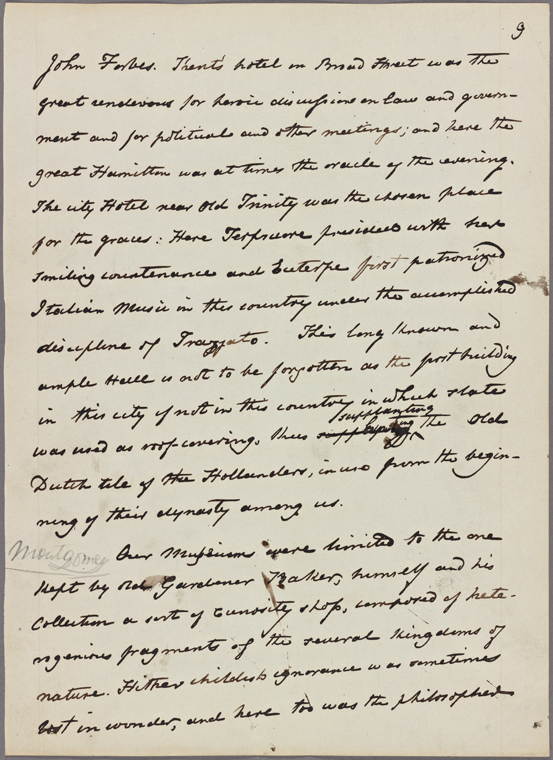 9
John Forbes. Kent's hotel on Broad Street was the
great rendevous for heroic discussions on law and govern-
ment and for political and other meetings; and here the
great Hamilton was at times the oracle of the evening.
The city Hotel near Old Trinity was the chosen place
for the graces: Here Terpsicore presided with her
smiling countenance and Euterpe first patronized
Italian Music in this country under the accomplished
discipline of Trazzato. This long known and
ample Hall is not to be forgotten as the first building
in this city if not in this country in which slate
supplanting
was used as roof-covering, thus the old
Dutch tile of the Hollanders, in use from the begin-
ning of their dynasty among us.
Montgomer
Our Museums were limited to the one
kept by old Gardener Baker, himself and his
Collection a sort of curiosity shop, composed of hete-
rogenious fragments of the several kingdoms of
nature. Hither childish ignorance was sometimes
lost in wonder, and here too was the philosopher